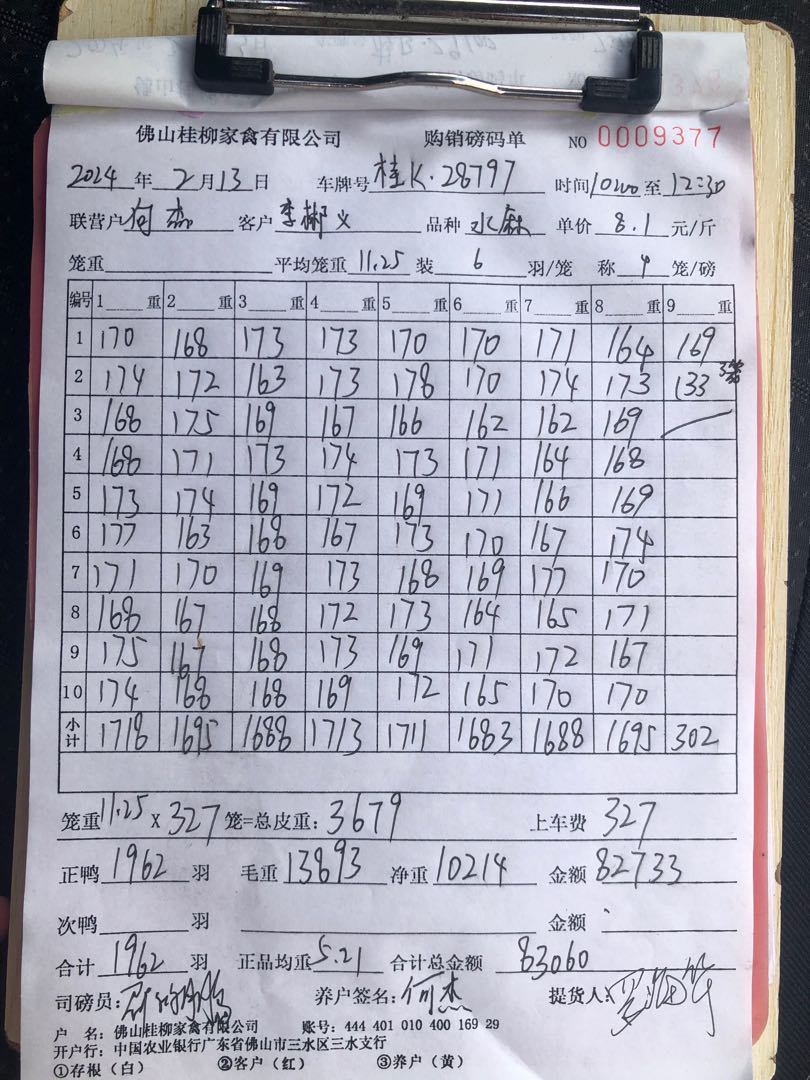 佛山桂柳家禽有限公司 购销磅码单 NO 0009377
2024 年 2 月 13 日 车牌号 桂K·28797 时间 1000 至 12:30
联营户 何杰 客户 李郴义 品种 水麻 单价 8.1 元/斤
笼重 平均笼重 11.25 装 6 羽/笼 称 4 笼/磅
编号 1 重 2 重 3 重 4 重 5 重 6 重 7 重 8 重 9 重
1 170 168 173 173 170 170 171 164 169
2 174 172 163 173 178 170 174 173 133 3笼
3 168 175 169 167 166 162 162 169
4 168 171 173 174 173 171 164 168
5 173 174 169 172 169 171 166 169
6 177 163 168 167 173 170 167 174
7 171 170 169 173 168 169 177 170
8 168 167 168 172 173 164 165 171
9 175 167 168 173 169 171 172 167
10 174 168 168 169 172 165 170 170
小计 1718 1695 1688 1713 1711 1683 1688 1695 302
笼重 11.25 X 327 笼=总皮重: 3679 上车费 327
正鸭 1962 羽 毛重 13893 净重 10214 金额 82733
次鸭 羽 金额
合计 1962 羽 正品均重 5.21 合计总金额 83060
司磅员: 养户签名: 何杰 提货人:
户 名: 佛山桂柳家禽有限公司 账号: 444 401 010 400 169 29
开户行: 中国农业银行广东省佛山市三水区三水支行
①存根（白） ②客户（红） ③养户（黄）